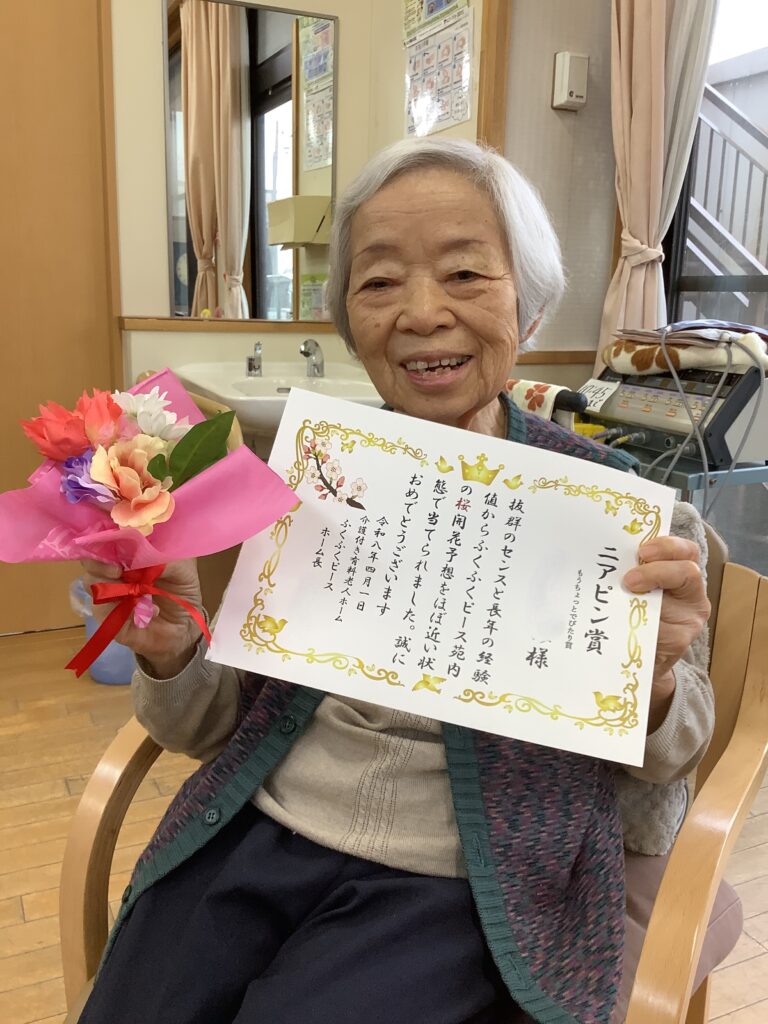 ニアピン賞
もうちょっとでぴたり賞
様
抜群のセンスと長年の経験
値からふくふくピース苑内
の桜開花予想をほぼ近い状
態で当てられました。誠に
おめでとうございます
令和八年四月一日
介護付き有料老人ホーム
ふくふくピース
ホーム長